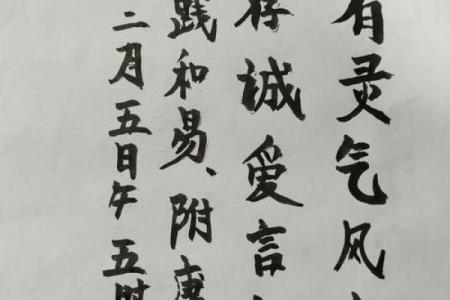 有灵气风
存诚爱言
践和易、附庸
二月五日午五时